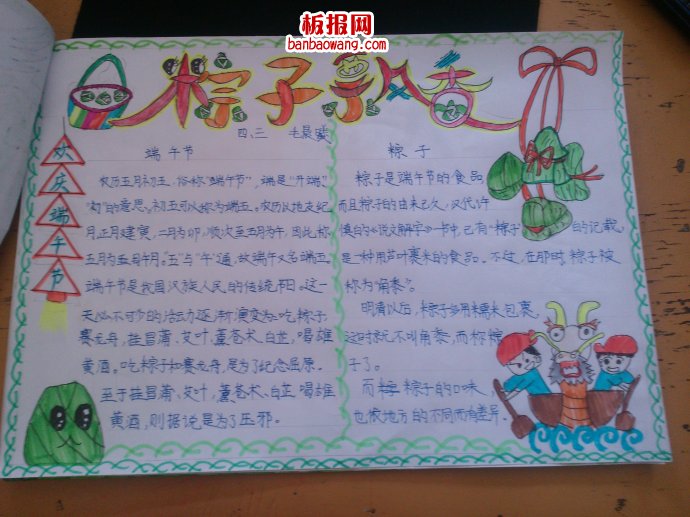 板报网
banbaowang.com
粽子飘香
四、三 毛晨
欢庆端午节
端午节
农历五月初五,俗称"端午节",端是"开端",
"初"的意思。初五可以称为端五。农历以地支纪
月正月建寅,二月为卯,顺次至五月为午,因此称
五月为午月。"五"与"午"通,故端午又名端五。
端午节是我国汉族人民的传统节日。这一
天必不可少的活动逐渐演变为:吃粽子,
赛龙舟,挂菖蒲、艾叶、薰苍术、白芷,喝雄
黄酒。吃粽子和赛龙舟,是为了纪念屈原。
至于挂菖蒲、艾叶,薰苍术、白芷,喝雄
黄酒,则据说是为了压邪。
粽子
粽子是端午节的食品
而且粽子的由来已久,汉代许
慎的《说文解字》一书中,已有"粽子"的记载,
是一种用芦叶裹米的食品。不过,在那时,粽子被
称为"角黍"。
明清以后,粽子多用糯米包裹,
这时就不叫角黍,而称粽
子了。
而粽子的口味,
也依地方的不同而有差异。